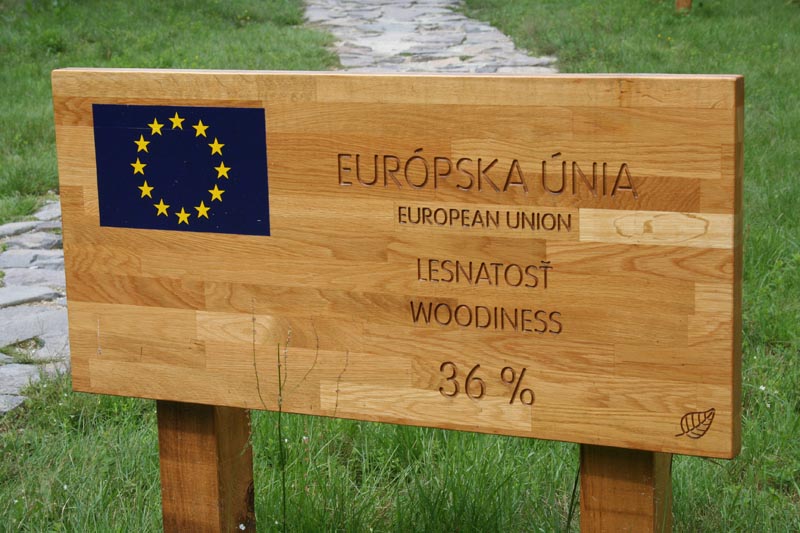 EURÓPSKA ÚNIA
EUROPEAN UNION
LESNATOSŤ
WOODINESS
36 %